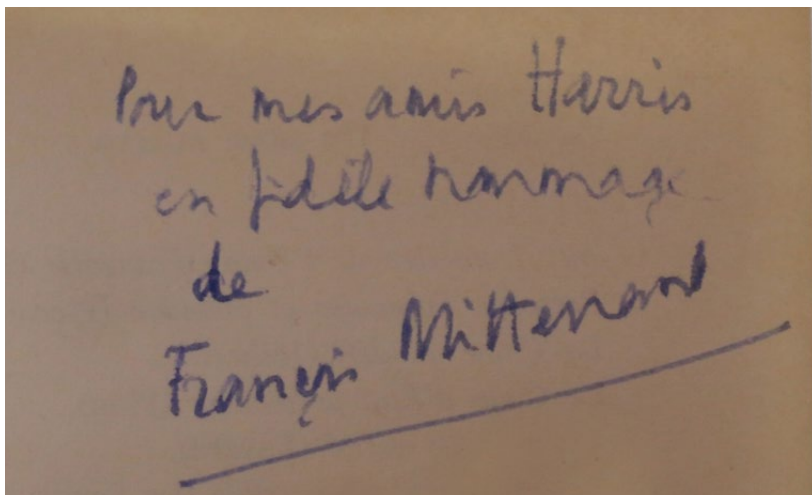 Pour mes amis Harris
en fidèle hommage
de
François Mitterrand